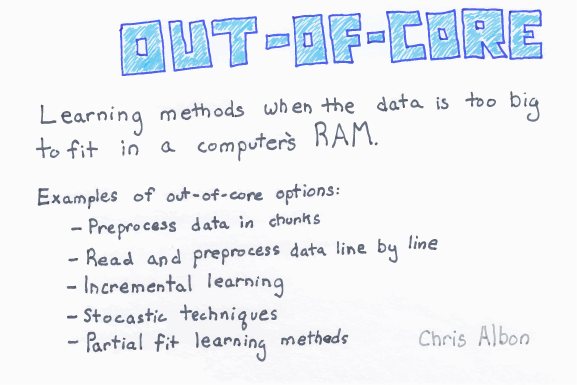 OUT-OF-CORE
Learning methods when the data is too big
to fit in a computer's RAM.
Examples of out-of-core options:
- Preprocess data in chunks
- Read and preprocess data line by line
- Incremental learning
- Stocastic techniques
- Partial fit learning methods
Chris Albon